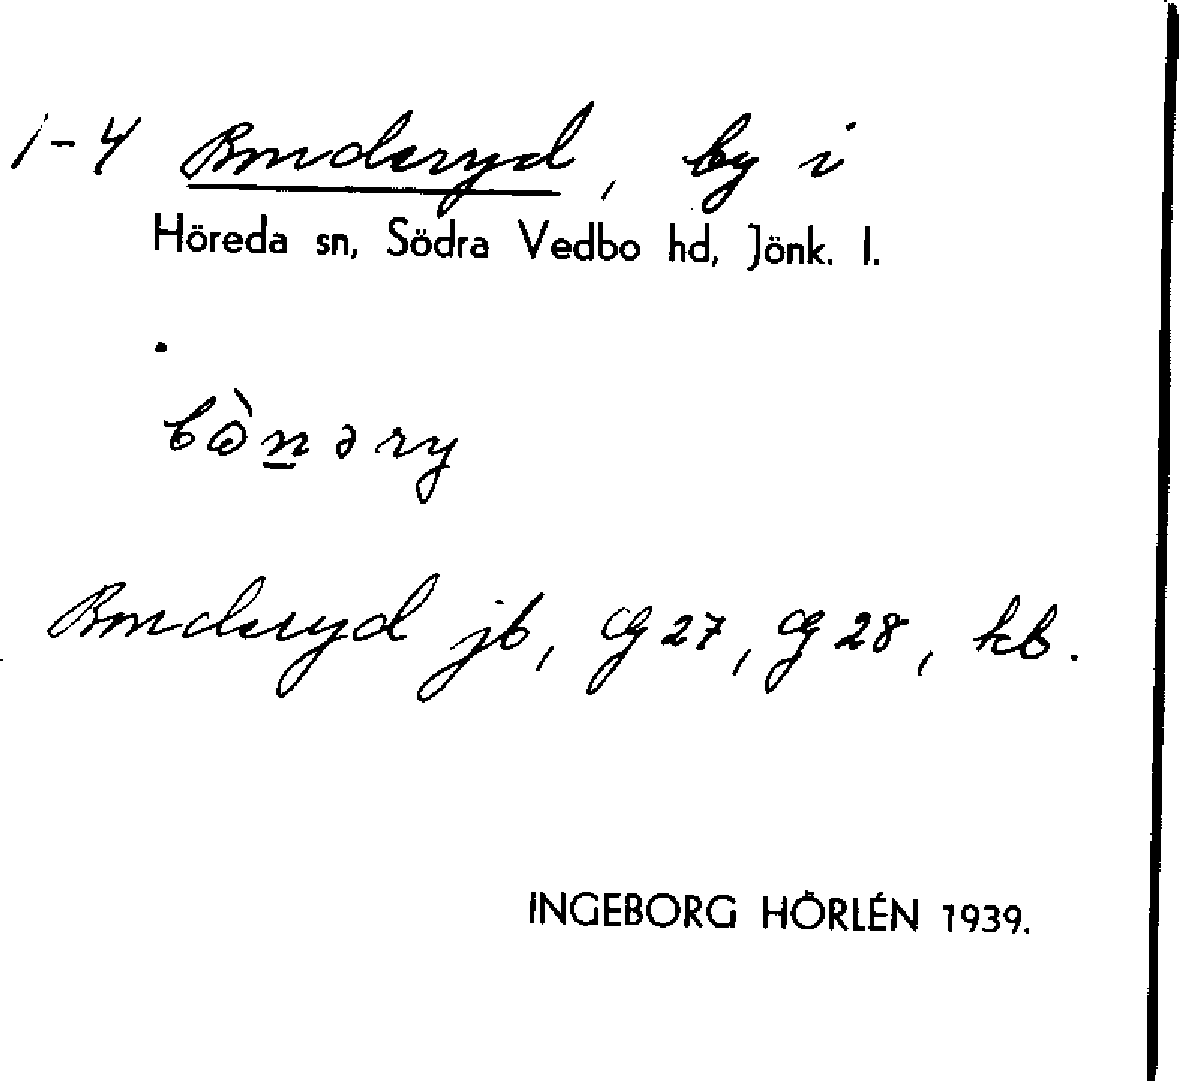 1-4 Bonderyd, by i
Höreda sn, Södra Vedbo hd, Jönk. l.
Bonderyd jb, Cg 27, Cg 28, kb.
INGEBORG HÖRLÉN 1939.